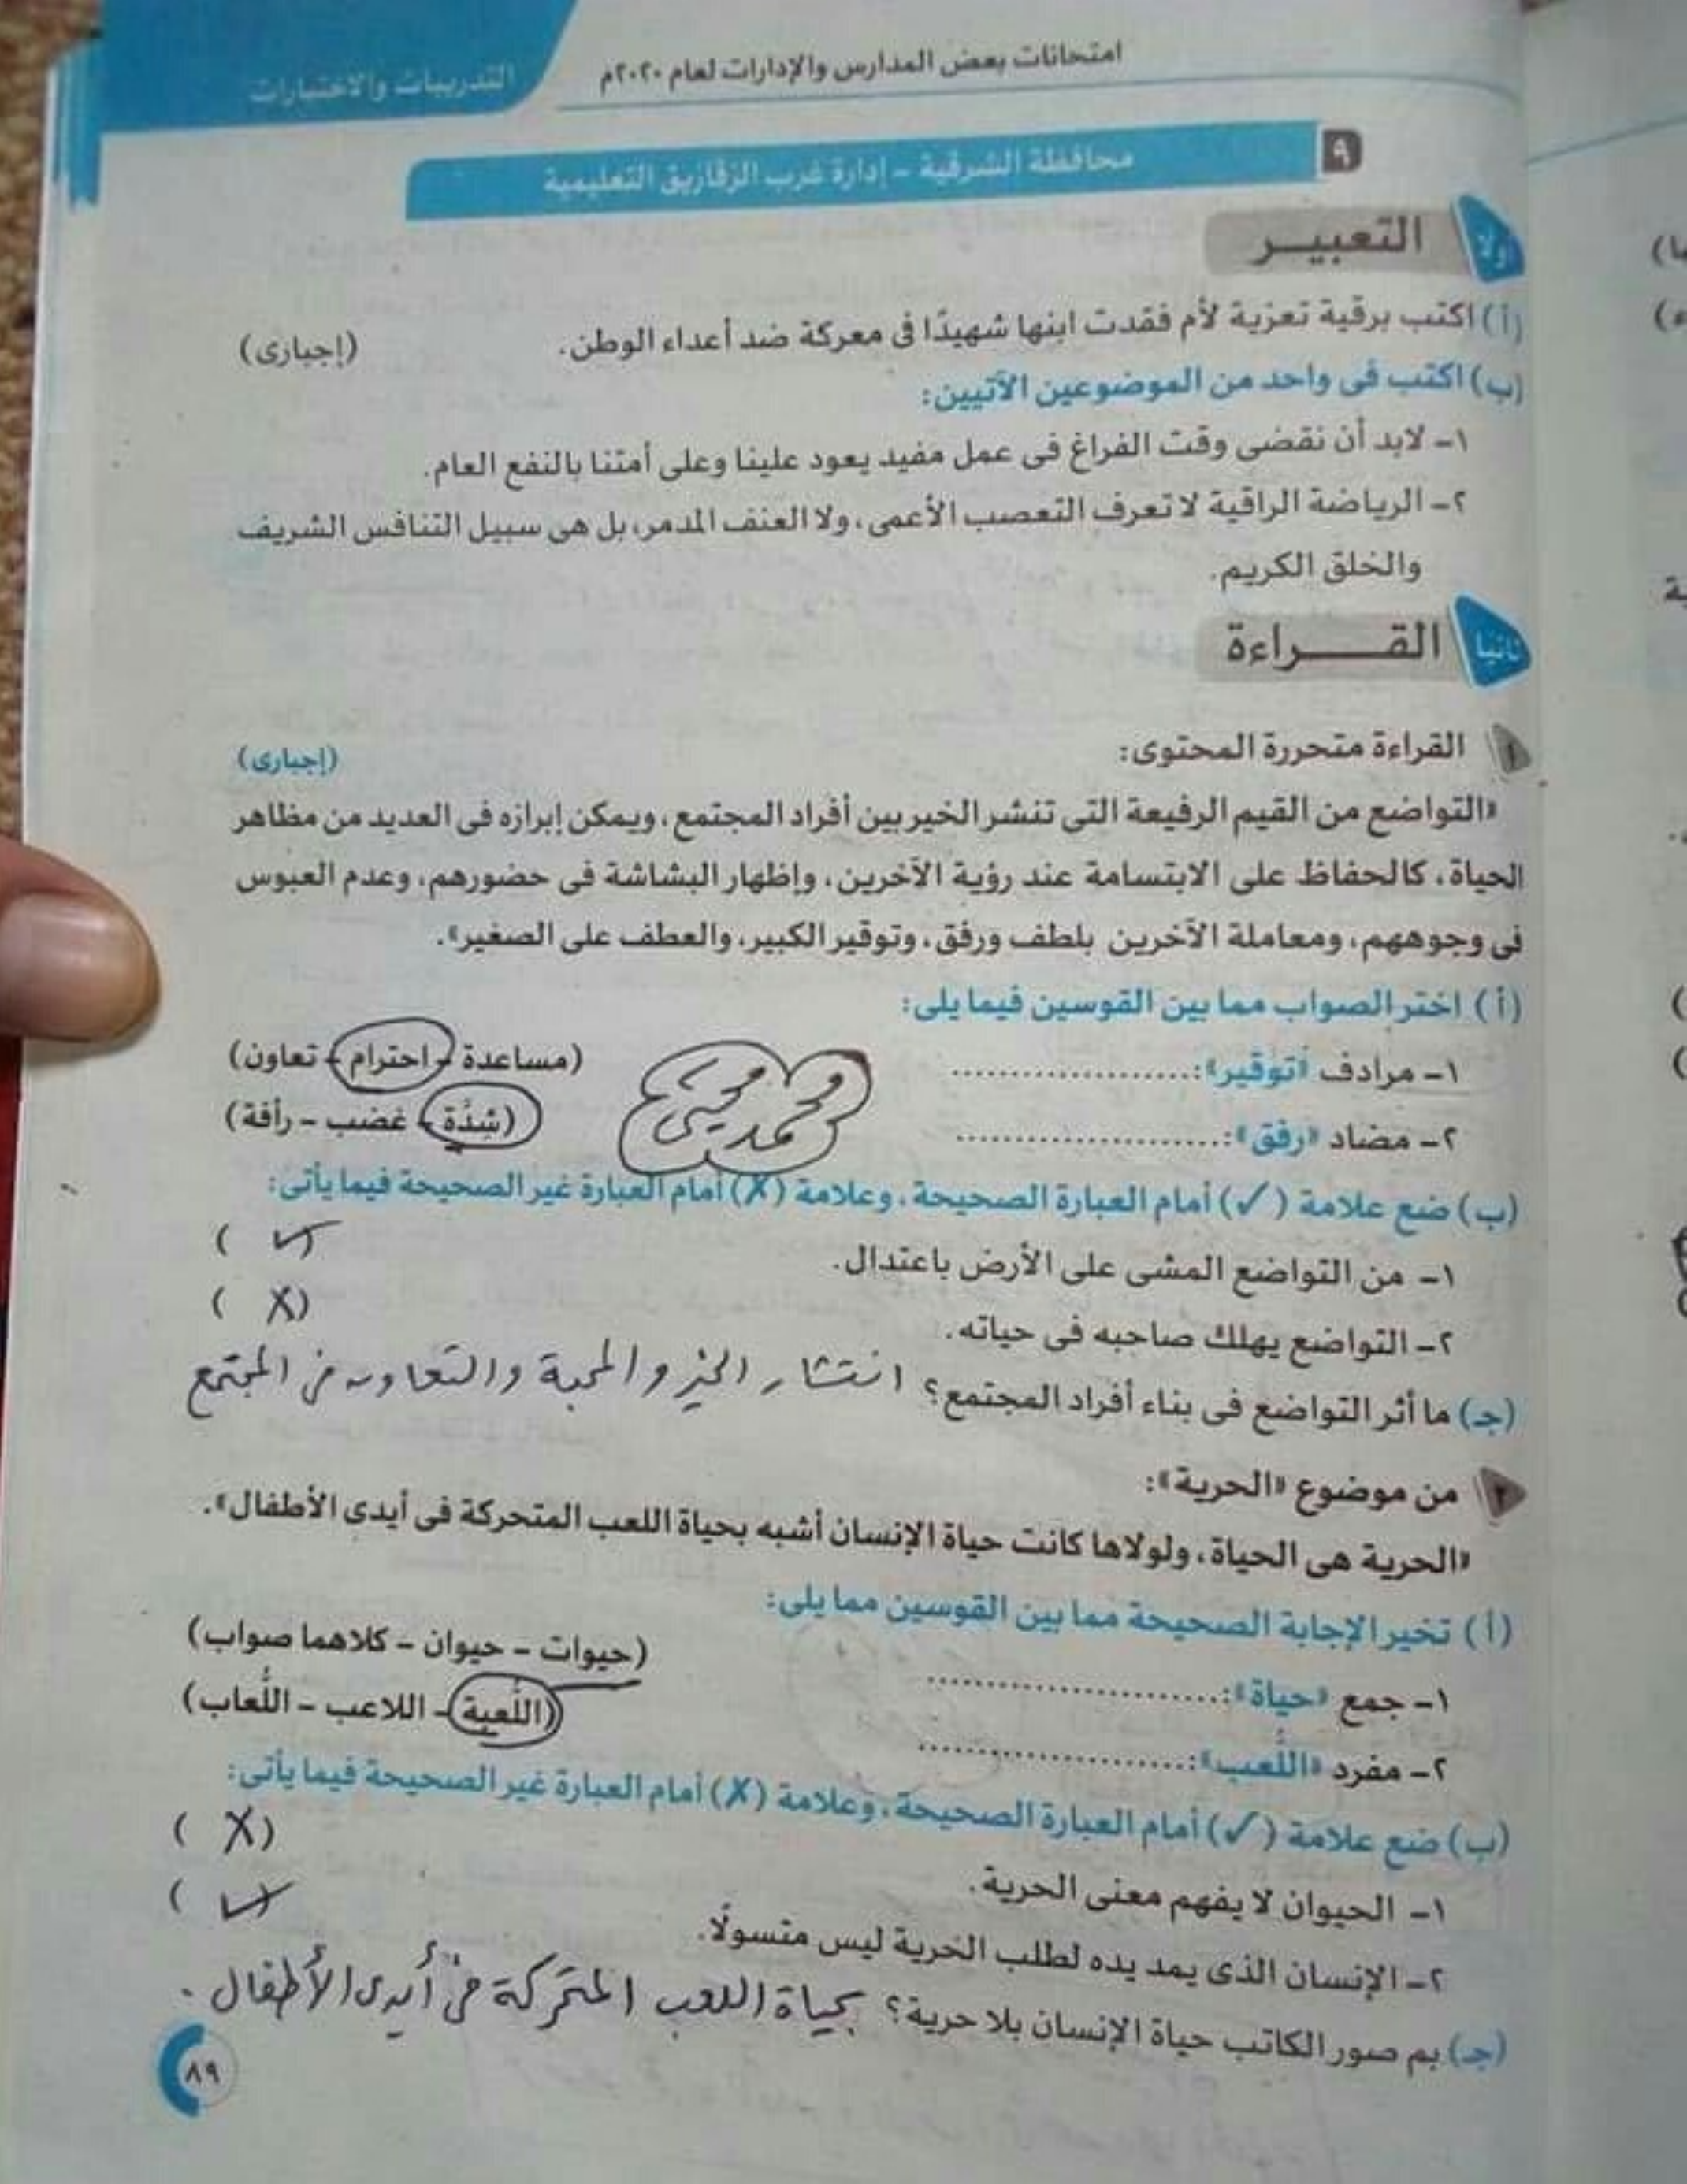 امتحانات بعض المدارس والإدارات لعام ٢٠٢٠م
التدريبات والاختبارات
٩
محافظة الشرقية - إدارة غرب الزقازيق التعليمية
أولا
التعبيـــر
(أ) اكتب برقية تعزية لأم فقدت ابنها شهيدًا فى معركة ضد أعداء الوطن. (إجبارى)
(ب) اكتب فى واحد من الموضوعين الآتيين:
١- لابد أن نقضى وقت الفراغ فى عمل مفيد يعود علينا وعلى أمتنا بالنفع العام.
٢- الرياضة الراقية لا تعرف التعصب الأعمى، ولا العنف المدمر، بل هى سبيل التنافس الشريف
والخلق الكريم.
ثانيا
القـــــراءة
١ القراءة متحررة المحتوى: (إجبارى)
«التواضع من القيم الرفيعة التى تنشر الخير بين أفراد المجتمع، ويمكن إبرازه فى العديد من مظاهر
الحياة، كالحفاظ على الابتسامة عند رؤية الآخرين، وإظهار البشاشة فى حضورهم، وعدم العبوس
فى وجوههم، ومعاملة الآخرين بلطف ورفق، وتوقير الكبير، والعطف على الصغير».
(أ) اختر الصواب مما بين القوسين فيما يلى:
١- مرادف «توقير»: ...................... (مساعدة - احترام - تعاون)
٢- مضاد «رفق»: ......................... (شِدَّة - غضب - رأفة)
محمد يحيى
(ب) ضع علامة (✓) أمام العبارة الصحيحة، وعلامة (✗) أمام العبارة غير الصحيحة فيما يأتى:
١- من التواضع المشى على الأرض باعتدال. ( ✓ )
٢- التواضع يهلك صاحبه فى حياته. ( ✗ )
(جـ) ما أثر التواضع فى بناء أفراد المجتمع؟ انتشار الخير والمحبة والتعاون فى المجتمع
٢ من موضوع «الحرية»:
«الحرية هى الحياة، ولولاها كانت حياة الإنسان أشبه بحياة اللعب المتحركة فى أيدى الأطفال».
(أ) تخير الإجابة الصحيحة مما بين القوسين مما يلى:
١- جمع «حياة»: ........................... (حيوات - حيوان - كلاهما صواب)
٢- مفرد «اللُّعب»: ......................... (اللُّعبة - اللاعب - اللُّعاب)
(ب) ضع علامة (✓) أمام العبارة الصحيحة، وعلامة (✗) أمام العبارة غير الصحيحة فيما يأتى:
١- الحيوان لا يفهم معنى الحرية. ( ✗ )
٢- الإنسان الذى يمد يده لطلب الحرية ليس متسولًا. ( ✓ )
(جـ) بم صور الكاتب حياة الإنسان بلا حرية؟ بحياة اللعب المتحركة فى أيدى الأطفال.
٨٩